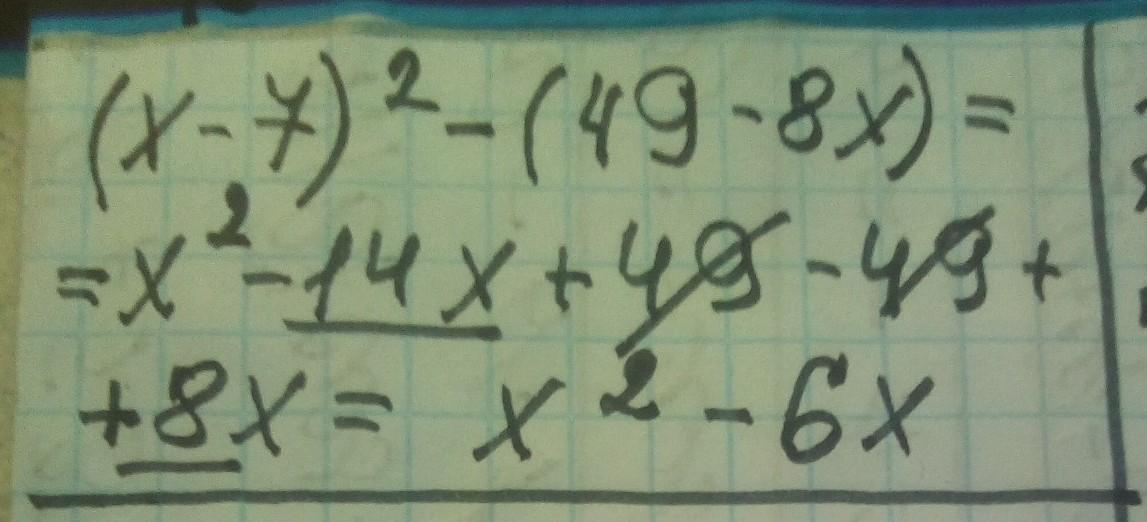 (x-7)² - (49-8x) =
= x² - 14x + 49 - 49 +
+8x = x² - 6x